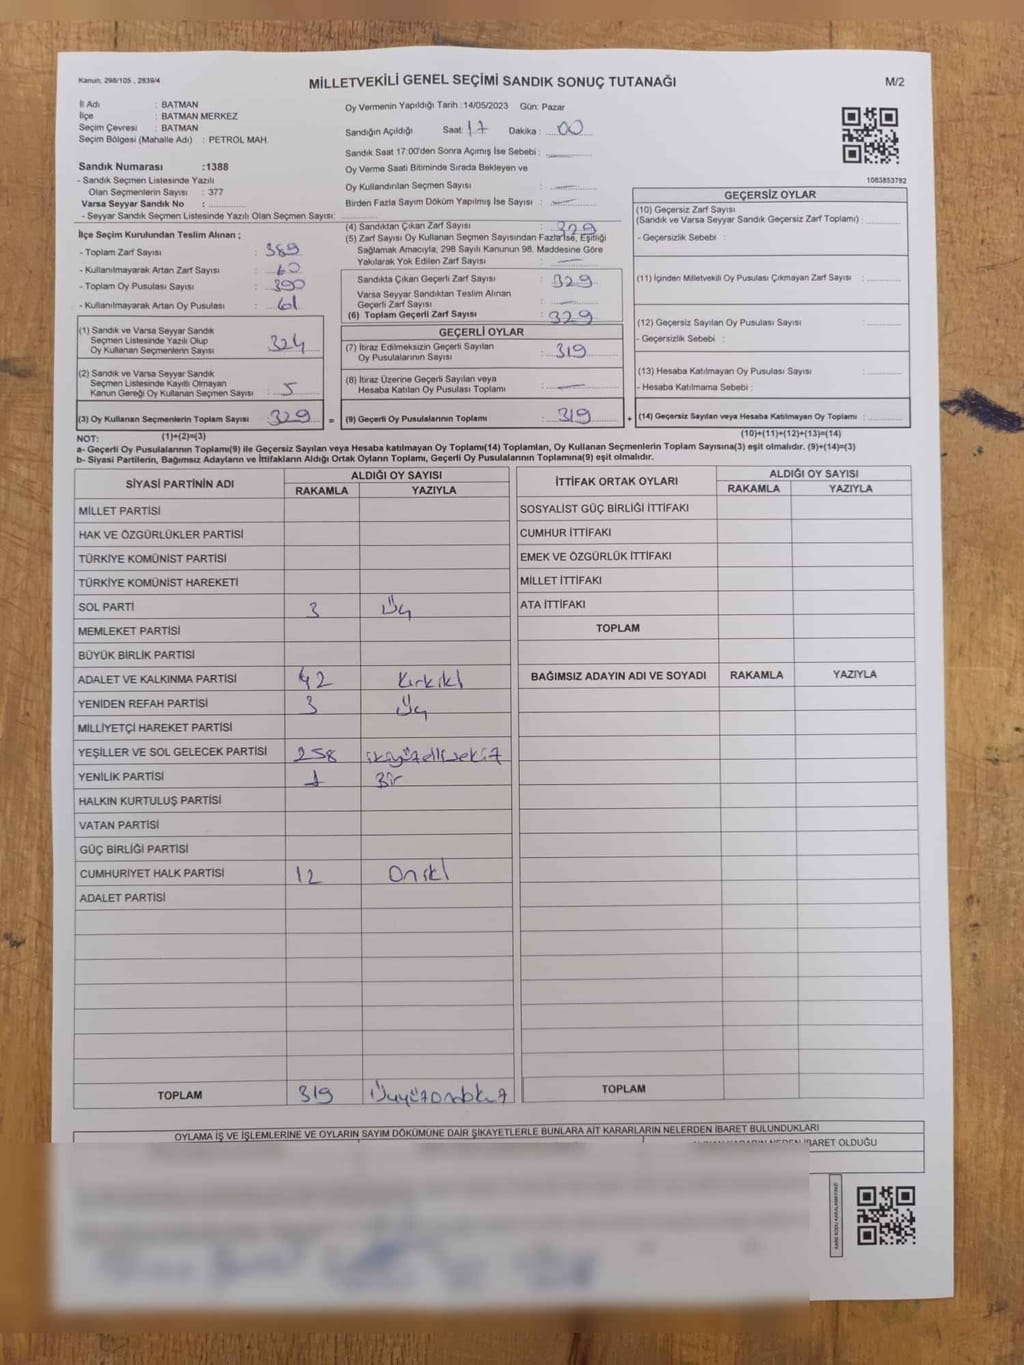 Kanun: 298/105 , 2839/4
MİLLETVEKİLİ GENEL SEÇİMİ SANDIK SONUÇ TUTANAĞI
M/2
İl Adı : BATMAN
İlçe : BATMAN MERKEZ
Seçim Çevresi : BATMAN
Seçim Bölgesi (Mahalle Adı) : PETROL MAH.
Sandık Numarası :1388
- Sandık Seçmen Listesinde Yazılı
Olan Seçmenlerin Sayısı : 377
Varsa Seyyar Sandık No :
- Seyyar Sandık Seçmen Listesinde Yazılı Olan Seçmen Sayısı:
Oy Vermenin Yapıldığı Tarih :14/05/2023 Gün: Pazar
Sandığın Açıldığı Saat: 17 Dakika : 00
Sandık Saat 17:00'den Sonra Açımış İse Sebebi : —
Oy Verme Saati Bitiminde Sırada Bekleyen ve
Oy Kullandırılan Seçmen Sayısı : —
Birden Fazla Sayım Döküm Yapılmış İse Sayısı : —
1083853782
İlçe Seçim Kurulundan Teslim Alınan ;
- Toplam Zarf Sayısı : 389
- Kullanılmayarak Artan Zarf Sayısı : 60
- Toplam Oy Pusulası Sayısı : 390
- Kullanılmayarak Artan Oy Pusulası : 61
(1) Sandık ve Varsa Seyyar Sandık
Seçmen Listesinde Yazılı Olup
Oy Kullanan Seçmenlerin Sayısı : 324
(2) Sandık ve Varsa Seyyar Sandık
Seçmen Listesinde Kayıtlı Olmayan
Kanun Gereği Oy Kullanan Seçmen Sayısı : 5
(3) Oy Kullanan Seçmenlerin Toplam Sayısı : 329
(1)+(2)=(3)
(4) Sandıktan Çıkan Zarf Sayısı : 329
(5) Zarf Sayısı Oy Kullanan Seçmen Sayısından Fazla İse, Eşitliği
Sağlamak Amacıyla, 298 Sayılı Kanunun 98. Maddesine Göre
Yakılarak Yok Edilen Zarf Sayısı : —
Sandıkta Çıkan Geçerli Zarf Sayısı : 329
Varsa Seyyar Sandıktan Teslim Alınan
Geçerli Zarf Sayısı : —
(6) Toplam Geçerli Zarf Sayısı : 329
GEÇERLİ OYLAR
(7) İtiraz Edilmeksizin Geçerli Sayılan
Oy Pusulalarının Sayısı : 319
(8) İtiraz Üzerine Geçerli Sayılan veya
Hesaba Katılan Oy Pusulası Toplamı : —
= (9) Geçerli Oy Pusulalarının Toplamı : 319
GEÇERSİZ OYLAR
(10) Geçersiz Zarf Sayısı
(Sandık ve Varsa Seyyar Sandık Geçersiz Zarf Toplamı) :
- Geçersizlik Sebebi :
(11) İçinden Milletvekili Oy Pusulası Çıkmayan Zarf Sayısı :
(12) Geçersiz Sayılan Oy Pusulası Sayısı :
- Geçersizlik Sebebi :
(13) Hesaba Katılmayan Oy Pusulası Sayısı :
- Hesaba Katılmama Sebebi :
+ (14) Geçersiz Sayılan veya Hesaba Katılmayan Oy Toplamı :
(10)+(11)+(12)+(13)=(14)
NOT:
a- Geçerli Oy Pusulalarının Toplamı(9) ile Geçersiz Sayılan veya Hesaba katılmayan Oy Toplamı(14) Toplamları, Oy Kullanan Seçmenlerin Toplam Sayısına(3) eşit olmalıdır. (9)+(14)=(3)
b- Siyasi Partilerin, Bağımsız Adayların ve İttifakların Aldığı Ortak Oyların Toplamı, Geçerli Oy Pusulalarının Toplamına(9) eşit olmalıdır.
SİYASİ PARTİNİN ADI ALDIĞI OY SAYISI
RAKAMLA YAZIYLA
MİLLET PARTİSİ
HAK VE ÖZGÜRLÜKLER PARTİSİ
TÜRKİYE KOMÜNİST PARTİSİ
TÜRKİYE KOMÜNİST HAREKETİ
SOL PARTİ 3 Üç
MEMLEKET PARTİSİ
BÜYÜK BİRLİK PARTİSİ
ADALET VE KALKINMA PARTİSİ 42 Kırkiki
YENİDEN REFAH PARTİSİ 3 Üç
MİLLİYETÇİ HAREKET PARTİSİ
YEŞİLLER VE SOL GELECEK PARTİSİ 258 ikiyüzellisekiz
YENİLİK PARTİSİ 1 Bir
HALKIN KURTULUŞ PARTİSİ
VATAN PARTİSİ
GÜÇ BİRLİĞİ PARTİSİ
CUMHURİYET HALK PARTİSİ 12 Oniki
ADALET PARTİSİ
TOPLAM 319 Üçyüzondokuz
İTTİFAK ORTAK OYLARI ALDIĞI OY SAYISI
RAKAMLA YAZIYLA
SOSYALİST GÜÇ BİRLİĞİ İTTİFAKI
CUMHUR İTTİFAKI
EMEK VE ÖZGÜRLÜK İTTİFAKI
MİLLET İTTİFAKI
ATA İTTİFAKI
TOPLAM
BAĞIMSIZ ADAYIN ADI VE SOYADI RAKAMLA YAZIYLA
TOPLAM
OYLAMA İŞ VE İŞLEMLERİNE VE OYLARIN SAYIM DÖKÜMÜNE DAİR ŞİKAYETLERLE BUNLARA AİT KARARLARIN NELERDEN İBARET BULUNDUKLARI
İBARET OLDUĞU
KARE KODU KARALAMAYINIZ!